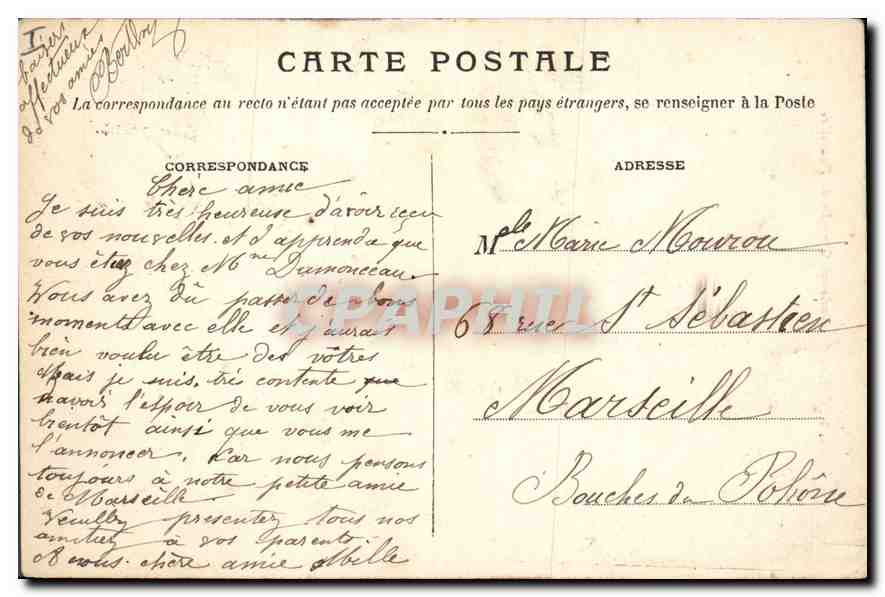 I
baisers
affectueux
de vos amies
CARTE POSTALE
La correspondance au recto n'étant pas acceptée par tous les pays étrangers, se renseigner à la Poste
CORRESPONDANCE
Chère amie
Je suis très heureuse d'avoir recu
de vos nouvelles et d'apprendre que
vous étiez chez Mme Dumonceau
Vous avez dû passer de bons
moments avec elle et j'aurais
bien voulu être des vôtres
Mais je suis très contente que
d'avoir l'espoir de vous voir
bientôt ainsi que vous me
l'annoncer. Car nous pensons
toujours à notre petite amie
de Marseille
Veuillez presentez tous nos
amitiez à vos parents.
A vous chère amie Mille
ADRESSE
Melle Marie Mouron
68 rue St Sébastien
Marseille
Bouches du Rhône
CPAPHIL